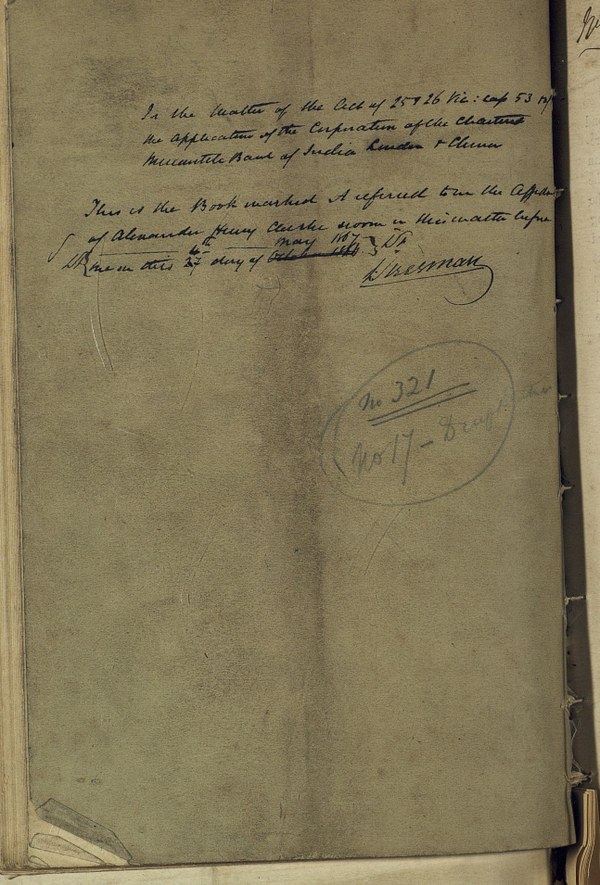 In the Matter of the Act of 25 & 26 Vic: cap 53
the Application of the Corporation of the Chartered
Mercantile Bank of India London & China
This is the Book marked A referred to in the Affidavit
of Alexander Henry Clarke sworn in this matter before
me in this 27 day of May 1867
No 321
No 17 -